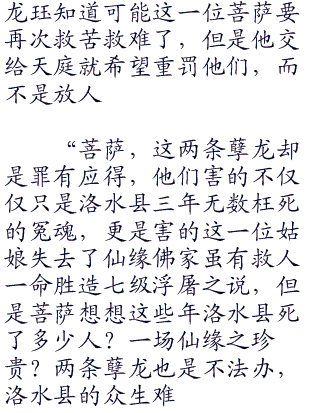 龙珏知道可能这一位菩萨要
再次救苦救难了，但是他交
给天庭就希望重罚他们，而
不是放人
“菩萨，这两条孽龙却
是罪有应得，他们害的不仅
仅只是洛水县三年无数枉死
的冤魂，更是害的这一位姑
娘失去了仙缘佛家虽有救人
一命胜造七级浮屠之说，但
是菩萨想想这些年洛水县死
了多少人？一场仙缘之珍
贵？两条孽龙也是不法办，
洛水县的众生难